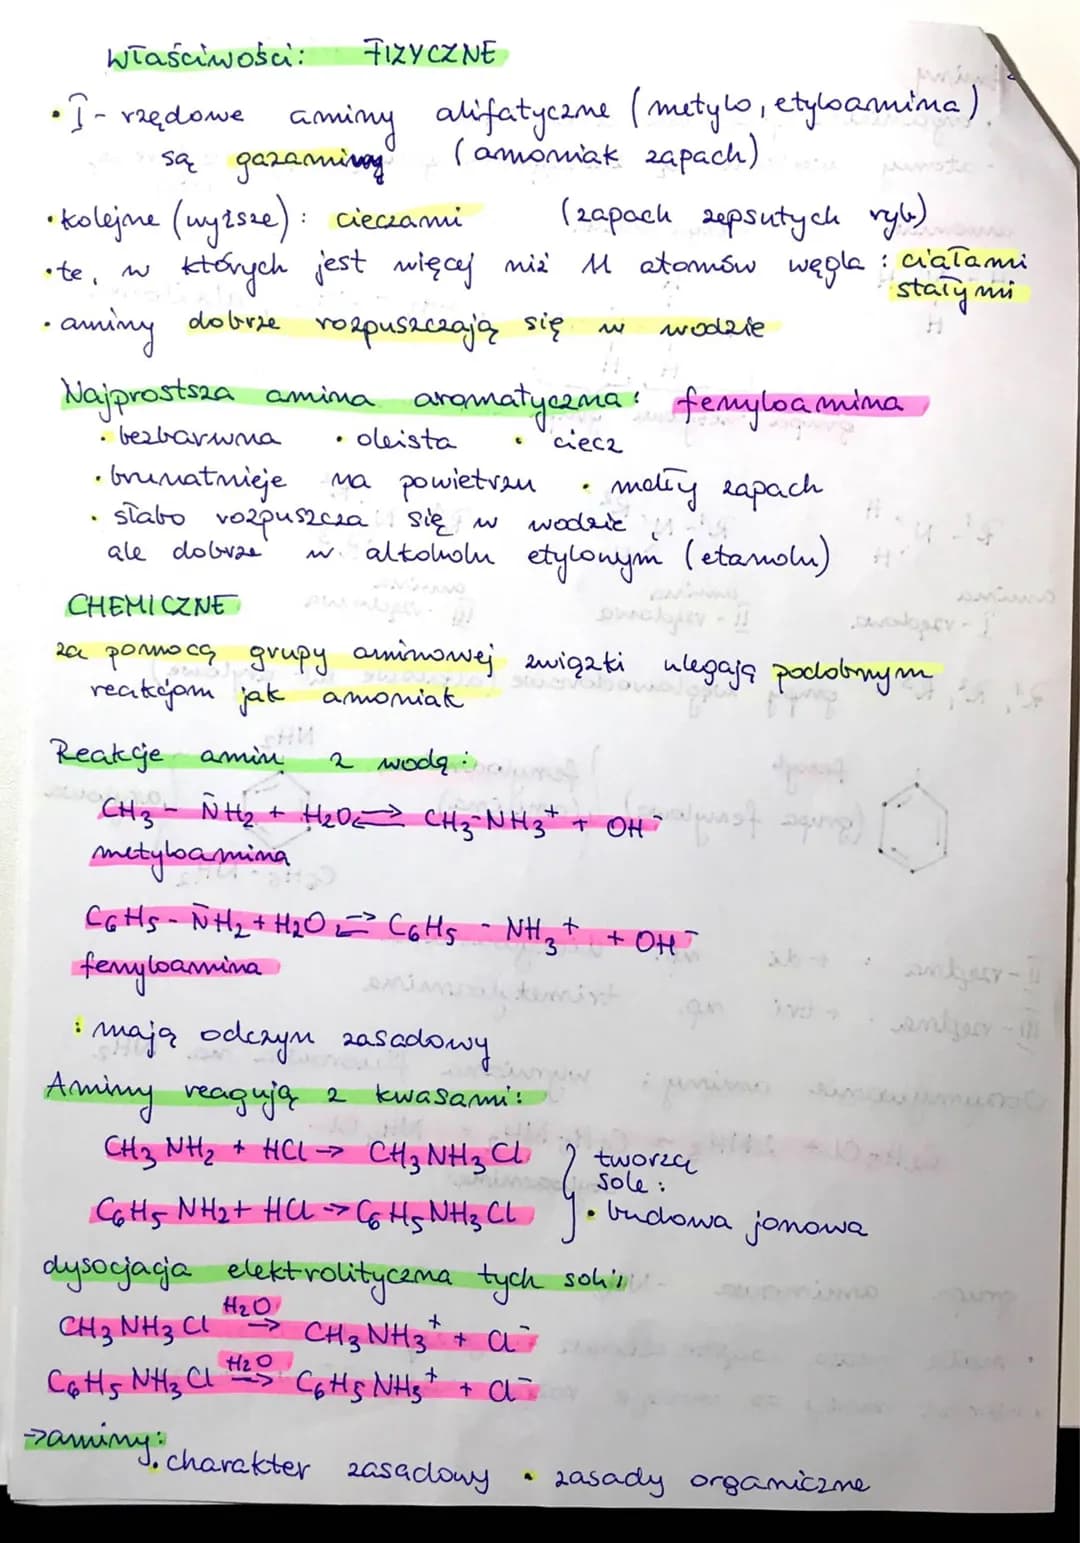 właściwości: FIZYCZNE
• I - rzędowe aminy alifatyczne (metylo, etyloamina)
są gazami (amoniak zapach)
• kolejne (wyższe): cieczami (zapach zepsutych ryb)
• te, w których jest więcej niż 11 atomów węgla: ciałami
stałymi
• aminy dobrze rozpuszczają się w wodzie
Najprostsza amina aromatyczna: fenyloamina
• bezbarwna • oleista • ciecz
• brunatnieje na powietrzu • mdły zapach
• słabo rozpuszcza się w wodzie,
ale dobrze w alkoholu etylowym (etanolu)
CHEMICZNE
za pomocą grupy aminowej związki ulegają podobnym
reakcjom jak amoniak
Reakcje amin z wodą:
CH3 - N̄H2 + H2O ⇌ CH3-NH3⁺ + OH⁻
metyloamina
C6H5 - N̄H2 + H2O ⇌ C6H5 - NH3⁺ + OH⁻
fenyloamina
: mają odczyn zasadowy
Aminy reagują z kwasami:
CH3NH2 + HCl → CH3NH3Cl } tworzą
sole:
C6H5NH2 + HCl → C6H5NH3Cl • budowa jonowa
dysocjacja elektrolityczna tych soli:
H2O
CH3NH3Cl → CH3NH3⁺ + Cl⁻
H2O
C6H5NH3Cl → C6H5NH3⁺ + Cl⁻
→aminy:
• charakter zasadowy • zasady organiczne